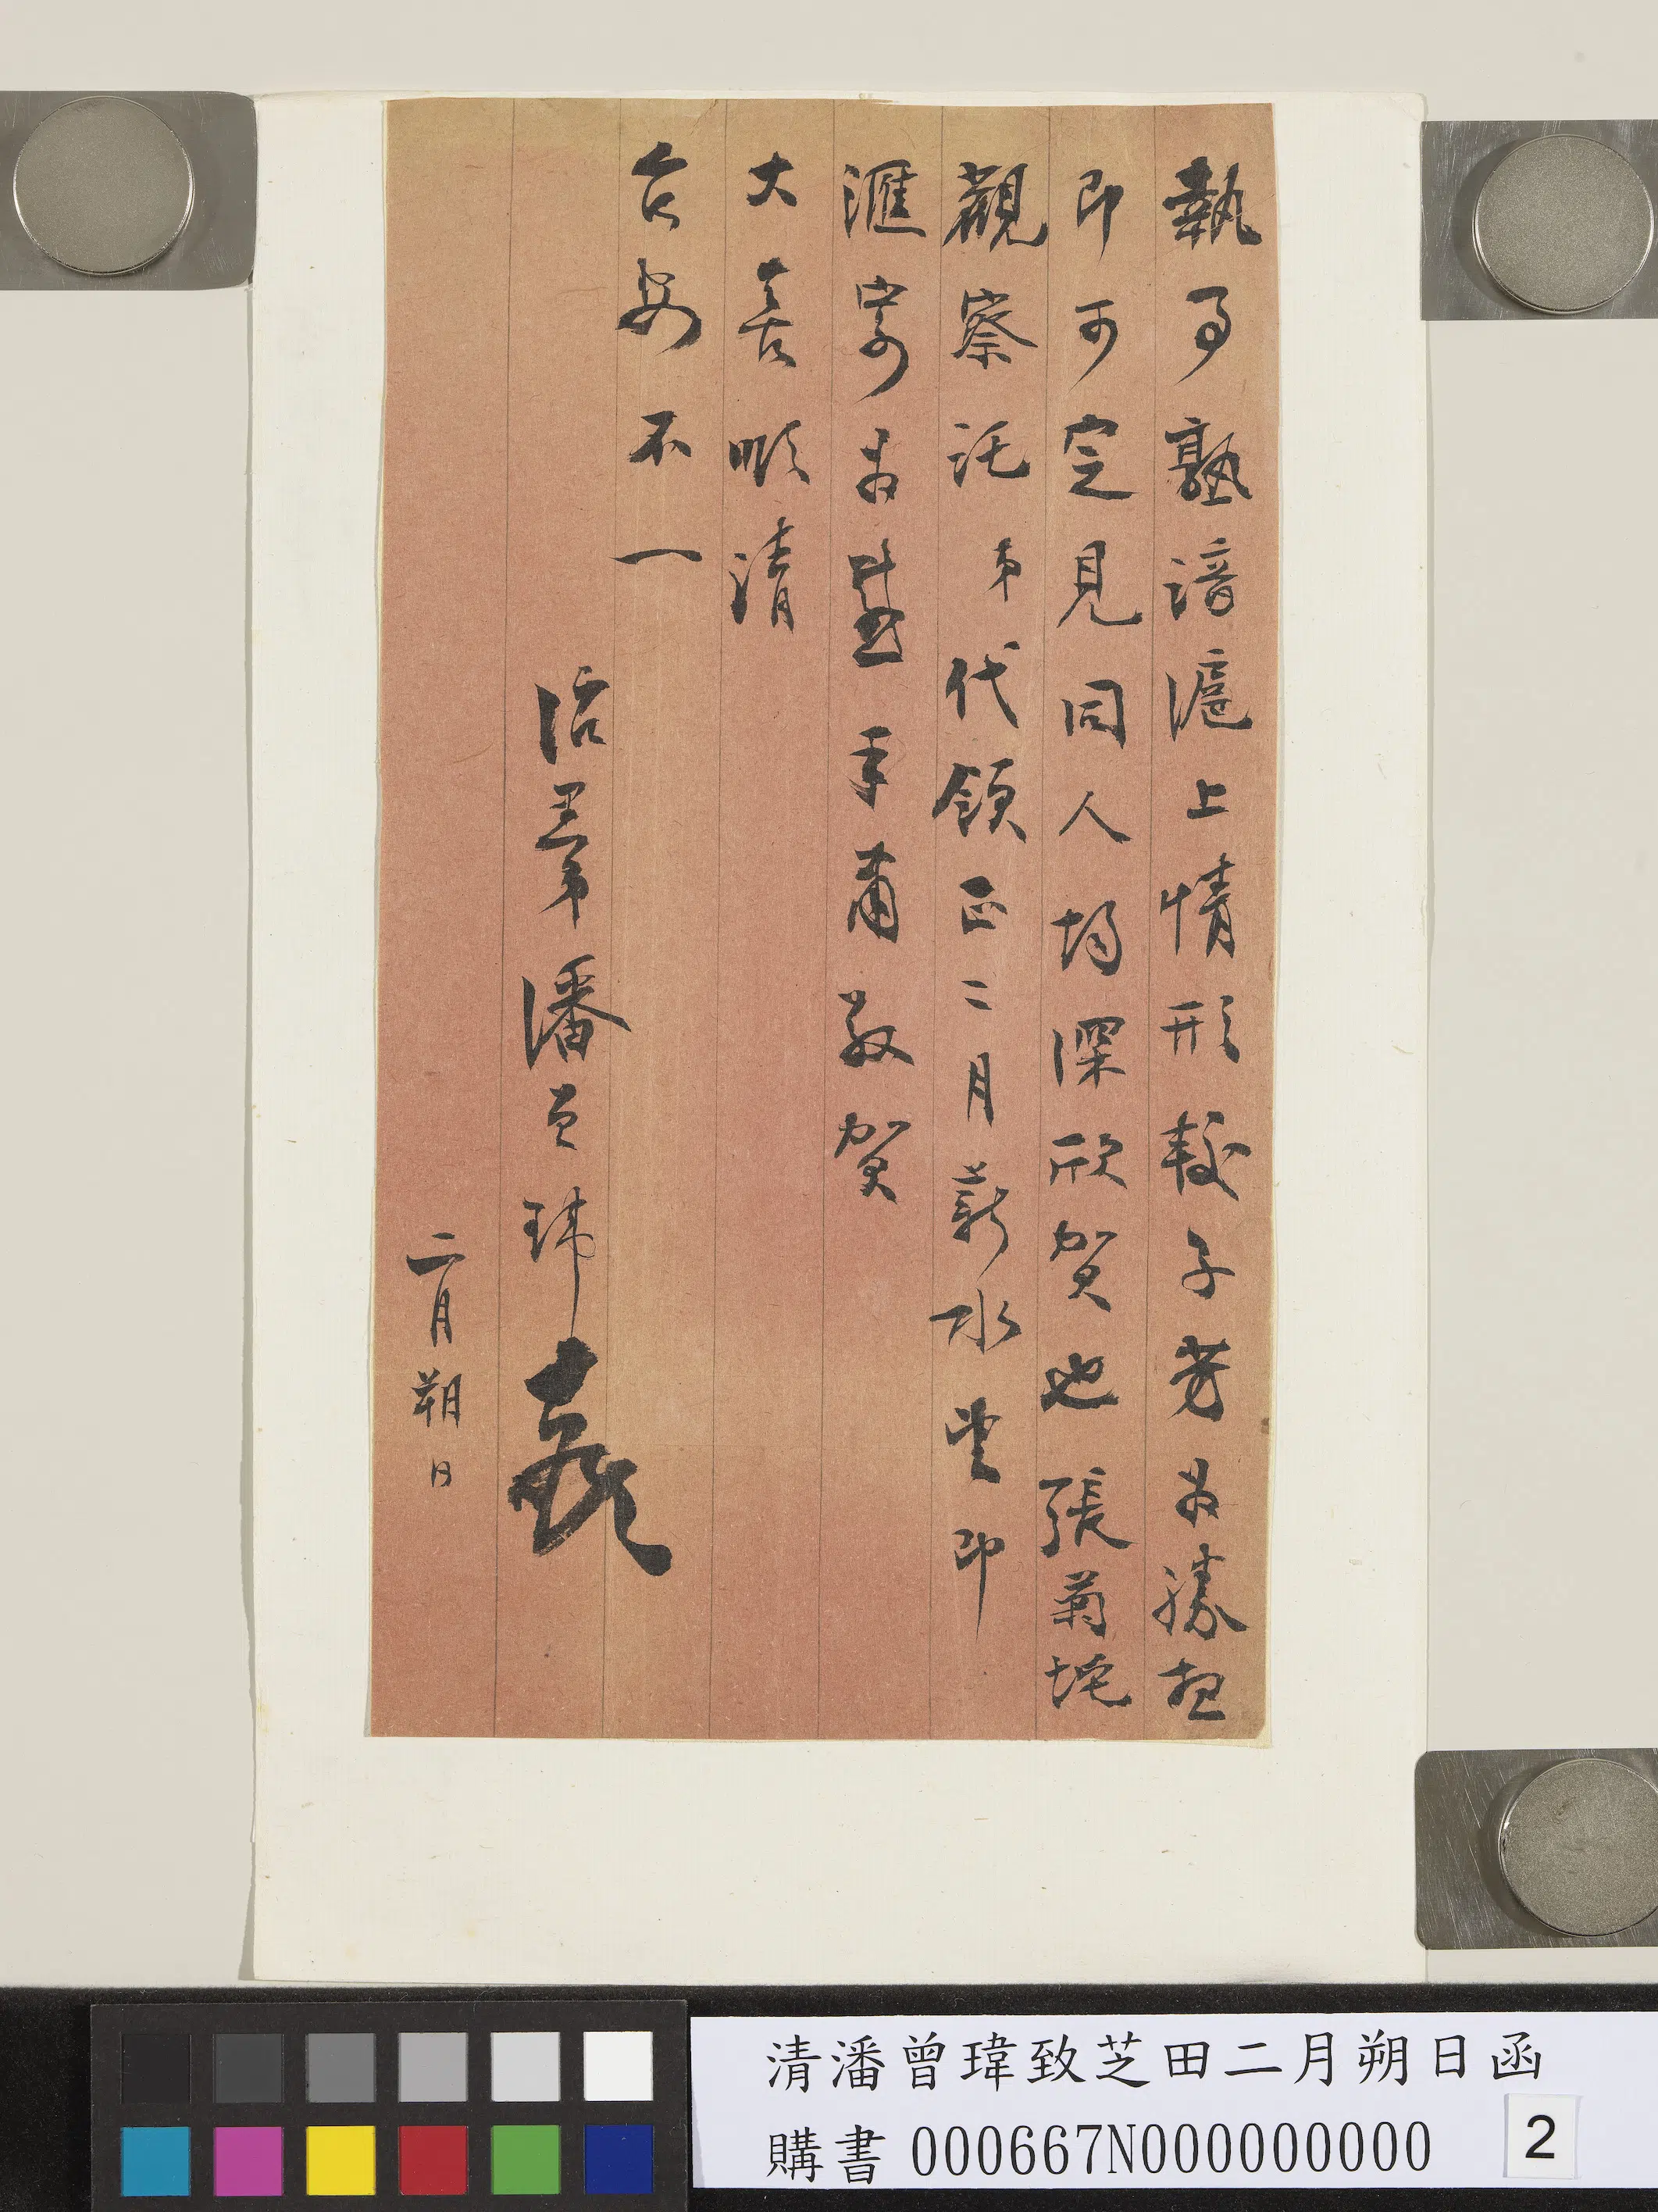 執事熟諳滬上情形較子芳為勝想
即可定見同人均深欣賀也張菊垞
觀察託弟代領正二月薪水望即
滙寄為盼手肅敬賀
大喜順請
台安不一
治愚弟潘曾瑋
二月朔日
清潘曾瑋致芝田二月朔日函
購書 000667N000000000
2